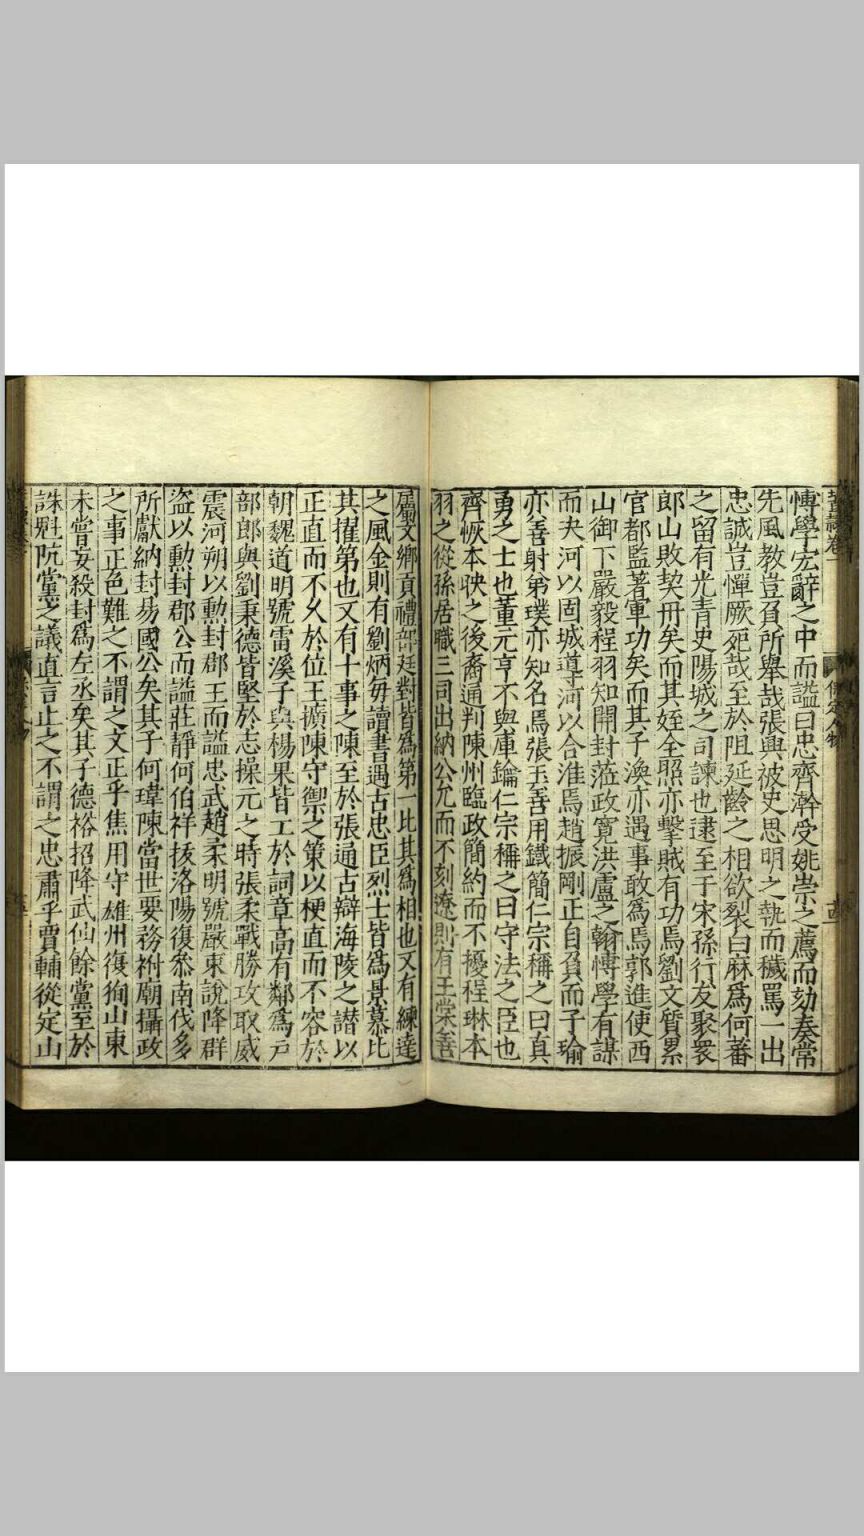 博學宏辭之中而謚曰忠齊澣受姚崇之薦而劾奏常
先風教豈負所舉哉張興被史思明之執而穢罵一出
忠誠豈憚厥死哉至於阻延齡之相欲裂白麻爲何蕃
之留有光青史陽城之司諫也逮至于宋孫行友聚衆
郎山敗契丹矣而其姪全照亦擊賊有功焉劉文質累
官都監著軍功矣而其子渙亦遇事敢爲焉郭進使西
山御下嚴毅程羽知開封蒞政寬洪盧之翰博學有謀
而夬河以固城導河以合淮焉趙振剛正自負而子瑜
亦善射弟璞亦知名焉張玉善用鐵簡仁宗稱之曰真
勇之士也董元亨不與庫鑰仁宗稱之曰守法之臣也
齊恢本映之後裔通判陳州臨政簡約而不擾程琳本
羽之從孫居職三司出納公允而不刻遼則有王棠善
屬文鄉貢禮部廷對皆爲第一比其爲相也又有練達
之風金則有劉炳每讀書遇古忠臣烈士皆爲景慕比
其擢第也又有十事之陳至於張通古辯海陵之譖以
正直而不久於位王擴陳守禦之策以梗直而不容於
朝魏道明號雷溪子與楊果皆工於詞章高有鄰爲戶
部郎與劉秉德皆堅於志操元之時張柔戰勝攻取威
震河朔以勲封郡王而謚忠武趙柔明號嚴東說降群
盜以勲封郡公而謚莊靜何伯祥拔洛陽復叅南伐多
所獻納封易國公矣其子何瑋陳當世要務祔廟攝政
之事正色難之不謂之文正乎焦用守雄州復狥山東
未嘗妄殺封爲左丞矣其子德裕招降武仙餘黨至於
誅魁阬黨之議直言止之不謂之忠肅乎賈輔從定山